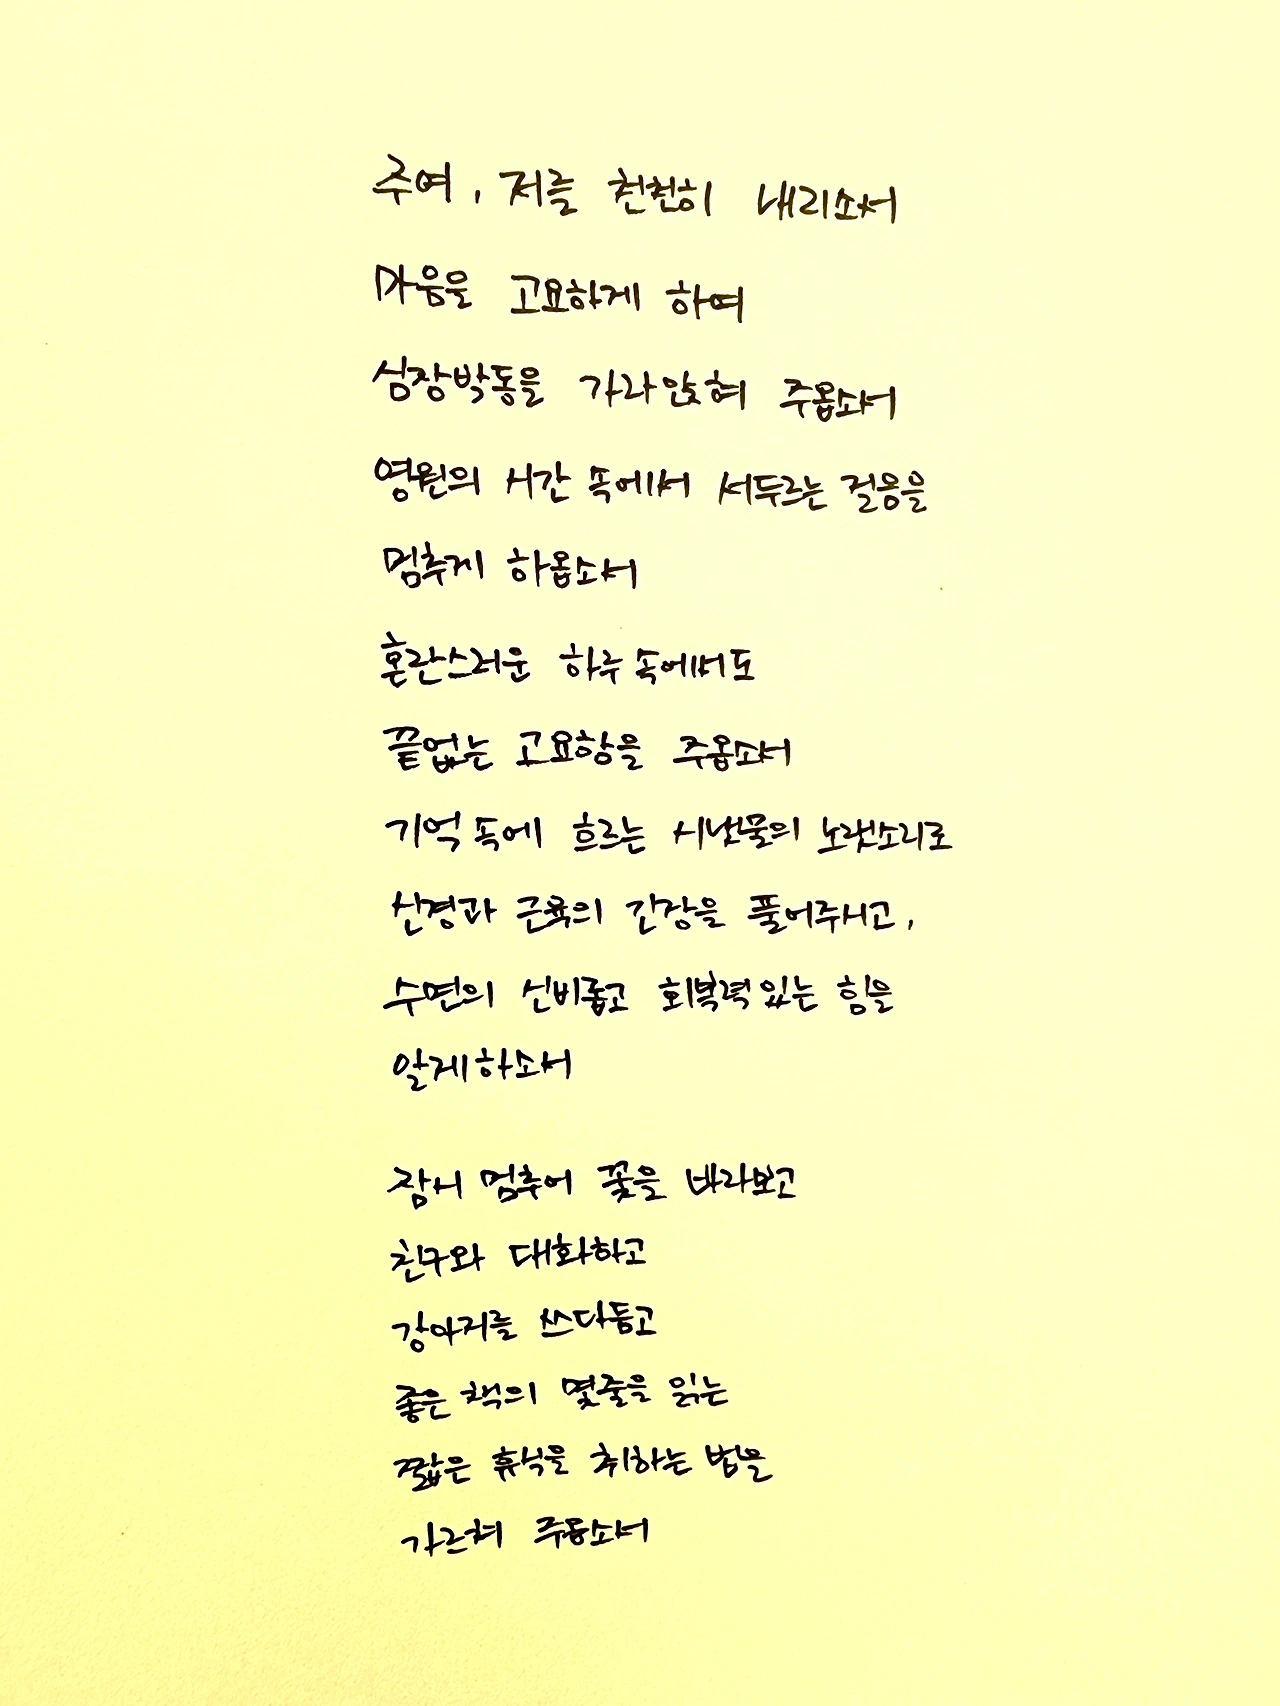 주여, 저를 천천히 내리소서
마음을 고요하게 하여
심장박동을 가라앉혀 주옵소서
영원의 시간 속에서 서두르는 걸음을
멈추게 하옵소서
혼란스러운 하루 속에서도
끝없는 고요함을 주옵소서
기억 속에 흐르는 시냇물의 노랫소리로
신경과 근육의 긴장을 풀어주시고,
수면의 신비롭고 회복력있는 힘을
알게하소서
잠시 멈추어 꽃을 바라보고
친구와 대화하고
강아지를 쓰다듬고
좋은 책의 몇줄을 읽는
짧은 휴식을 취하는 법을
가르쳐 주옵소서